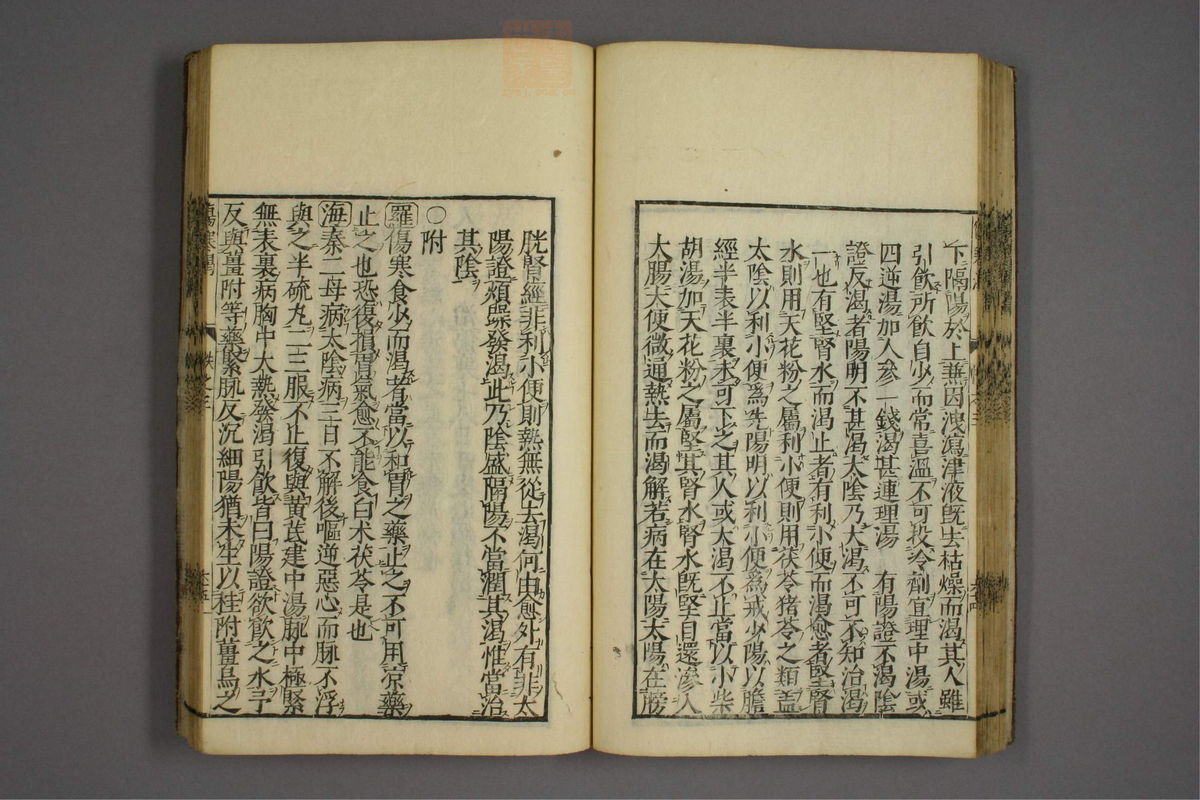 下隔陽於上兼因洩瀉津液旣去枯燥而渴其人雖
引飲所飲自少而常喜溫不可投冷劑宜理中湯或
四逆湯加人參一錢渴甚連理湯　有陽證不渴陰
證反渴者陽明不甚渴太陰乃大渴不可不知治渴
一也有堅腎水而渴止者有利小便而渴愈者堅腎
水則用天花粉之屬利小便則用茯苓猪苓之類盖
太陰以利小便爲先陽明以利小便爲戒少陽以膽
經半表半裏未可下之其人或大渴不止當以小柴
胡湯加天花粉之屬堅其腎水腎水旣堅自還滲入
大腸大便微通熱去而渴解若病在太陽太陽在膀
胱腎經非利小便則熱無從去渴何由愈外有非太
陽證煩躁發渴此乃陰盛隔陽不當潤其渴惟當治
其陰
○附
羅傷寒食少而渴者當以和胃之藥止之不可用凉藥
止之也恐復損胃氣愈不能食白术茯苓是也
海秦二母病太陰病三日不解後嘔逆惡心而脉不浮
與之半硫丸二三服不止復與黃芪建中湯脉中極緊
無表裏病胸中大熱發渴引飲皆曰陽證欲飲之水予
反與薑附等藥緊脉反沉細陽猶未生以桂附薑烏之